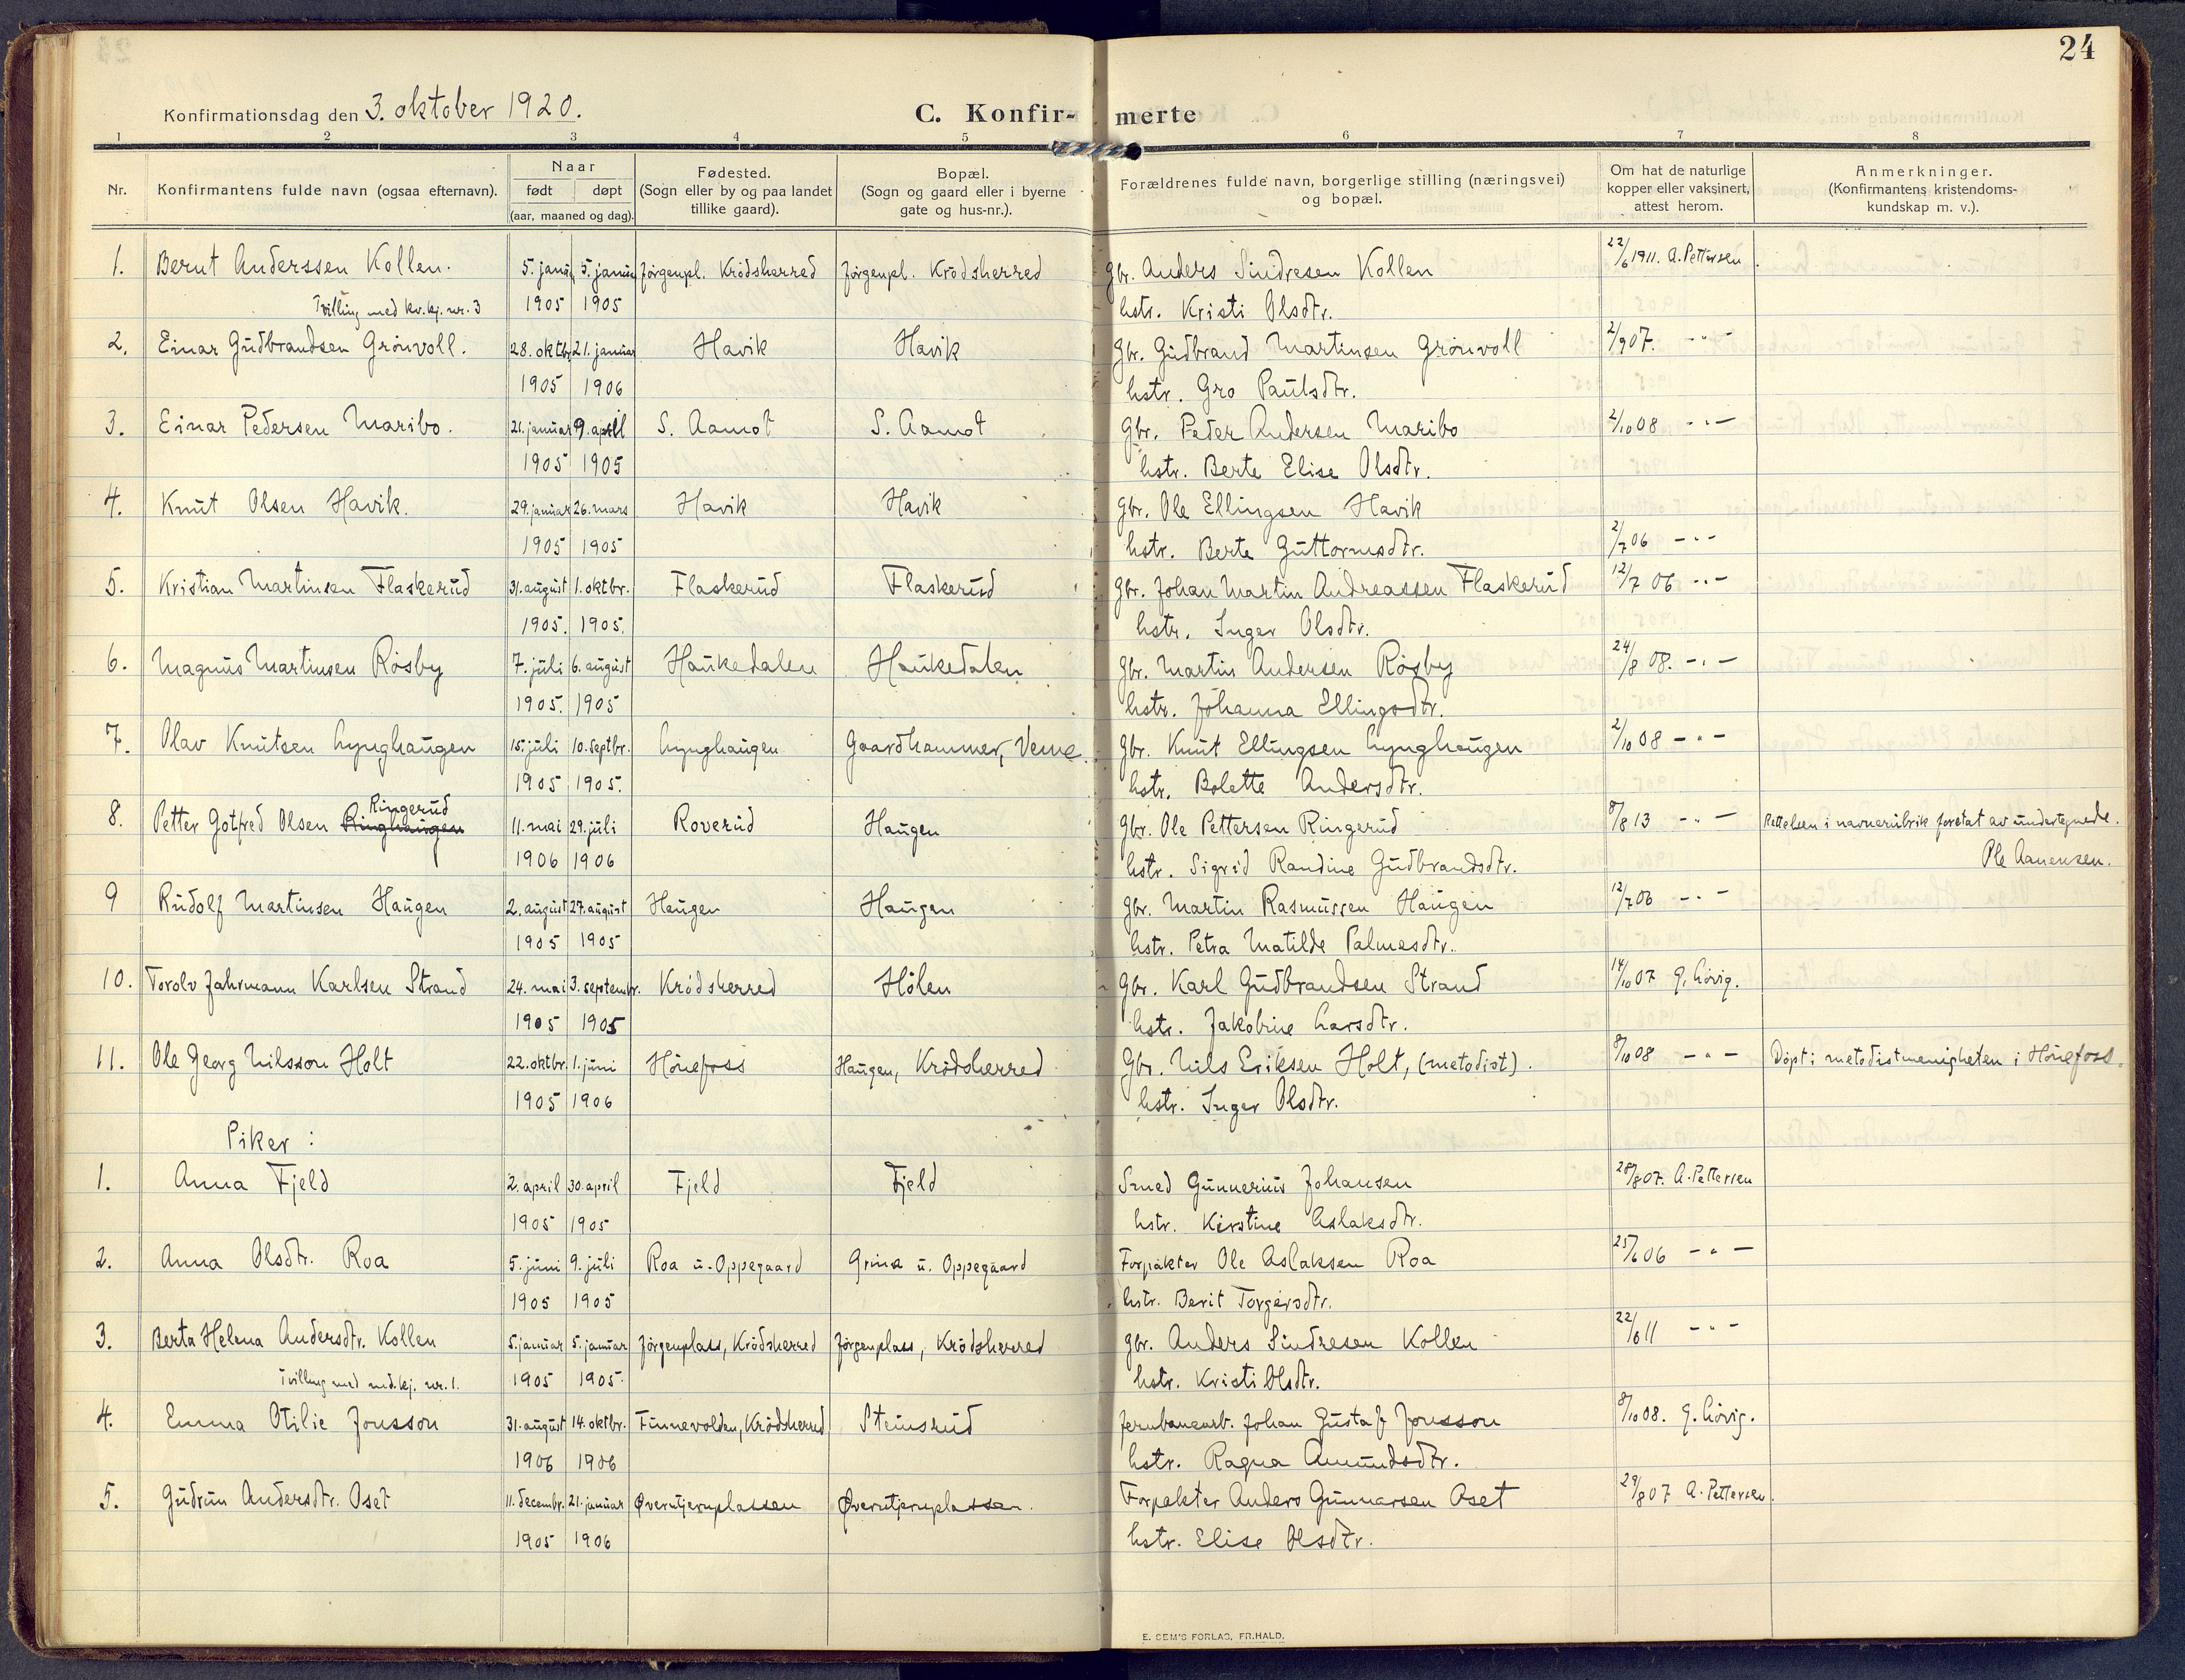 24
Konfirmationsdag den 3. oktober 1920. C. Konfir- merte
1 2 3 4 5 6 7 8
Nr. Konfirmantens fulde navn (ogsaa efternavn). Naar født døpt (aar, maaned og dag). Fødested. (Sogn eller by og paa landet tillike gaard). Bopæl. (Sogn og gaard eller i byerne gate og hus-nr.). Forældrenes fulde navn, borgerlige stilling (næringsvei) og bopæl. Om hat de naturlige kopper eller vaksinert, attest herom. Anmerkninger. (Konfirmantens kristendoms-kundskap m. v.).
1. Bernt Anderssen Kollen. 5. januar 5. januar Jørgenpl. Krødsherred Jørgenpl. Krødsherred Gbr. Anders Sindresen Kollen 22/6 1911. A. Pettersen
Tvilling med kv.kj. nr. 3 1905 1905 hstr. Kristi Olsdtr.
2. Einar Gudbrandsen Grønvoll. 28. oktbr. 21. januar Havik Havik Gbr. Gudbrand Martinsen Grønvoll 2/9 07. -"-
1905 1906 hstr. Gro Paulsdtr.
3. Einar Pedersen Maribo. 21. januar 9. april S. Aamot S. Aamot Gbr. Peder Andersen Maribo 2/10 08 -"-
1905 1905 hstr. Berte Elise Olsdtr.
4. Knut Olsen Havik. 29. januar 26. mars Havik Havik Gbr. Ole Ellingsen Havik
1905 1905 hstr. Berte Guttormsdtr. 2/7 06 -"-
5. Kristian Martinsen Flaskerud 31. august 1. oktbr. Flaskerud Flaskerud Gbr. Johan Martin Andreassen Flaskerud 12/7 06 -"-
1905. 1905. hstr. Inger Olsdtr.
6. Magnus Martinsen Røsby 7. juli 6. august Haukedalen Haukedalen Gbr. Martin Andersen Røsby 24/8 08. -"-
1905. 1905 hstr. Johanna Ellingsdtr.
7. Olav Knutsen Lynghaugen 15. juli 10. septbr. Lynghaugen Gaardhammer, Veme. Gbr. Knut Ellingsen Lynghaugen 2/10 08 -"-
1905 1905. hstr. Bolette Andersdtr.
Ringerud
8. Petter Gotfred Olsen Ringhaugen 11. mai 29. juli Roverud Haugen Gbr. Ole Pettersen Ringerud 8/8 13 -"- Rettelsen i navnerubrik foretat av undertegnede.
1906 1906 hstr. Sigrid Randine Gudbrandsdtr. Ole Aanensen.
9 Rudolf Martinsen Haugen 2. august 27. august Haugen Haugen Gbr. Martin Rasmussen Haugen 12/7 06 -"-
1905 1905 hstr. Petra Matilde Palmesdtr.
10. Torolv Jahrmann Karlsen Strand 24. mai 3. septembr. Krødsherred Hølen Gbr. Karl Gudbrandsen Strand 14/10 07 G. Løvig.
1905 1905 hstr. Jakobine Larsdtr.
11. Ole Georg Nilsson Holt 22. oktbr. 1. juni Hønefoss Haugen, Krødsherred Gbr. Nils Eriksen Holt, (metodist). 8/10 08 -"- Døpt i metodistmenigheten i Hønefoss.
1905 1906 hstr. Inger Olsdtr.
Piker:
1. Anna Fjeld 2. april 30. april Fjeld Fjeld Smed Gunnerius Johansen 28/8 07. A. Pettersen
1905 1905 hstr. Kirstine Aslaksdtr.
2. Anna Olsdtr. Roa 5. juni 9. juli Roa u. Oppegaard Grina u. Oppegaard Forpakter Ole Aslaksen Roa 25/6 06 -"-
1905 1905 hstr. Berit Torgersdtr.
3. Berta Helena Andersdtr. Kollen 5. januar 5. januar Jørgenplass, Krødsherred Jørgenplass, Krødsherred Gbr. Anders Sindresen Kollen 22/6 11 -"-
Tvilling med md.kj. nr. 1. 1905 1905. hstr. Kristi Olsdtr.
4. Emma Otilie Jonsson 31. august 14. oktbr. Finnevolden, Krødsherred Steinsrud Jernbanearb. Johan Gustaf Jonsson 8/10 08. G. Løvig.
1906 1906 hstr. Ragna Amundsdtr.
5. Gudrun Andersdtr. Oset 11. decembr. 21. januar Øverntjernplassen Øverntjernplassen. Forpakter Anders Gunnarsen Oset 29/8 07 A. Pettersen.
1905 1906 hstr. Elise Olsdtr.
E. SEM'S FORLAG, FR.HALD.